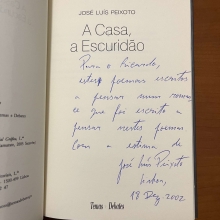 JOSÉ LUÍS PEIXOTO
A Casa,
a Escuridão
Para o Ricardo,
estes poemas escritos
a pensar num romance
que foi escrito a
pensar nestes poemas
Com a estima de
José Luís Peixoto
Lisboa,
18 Dez 2002
Temas Debates